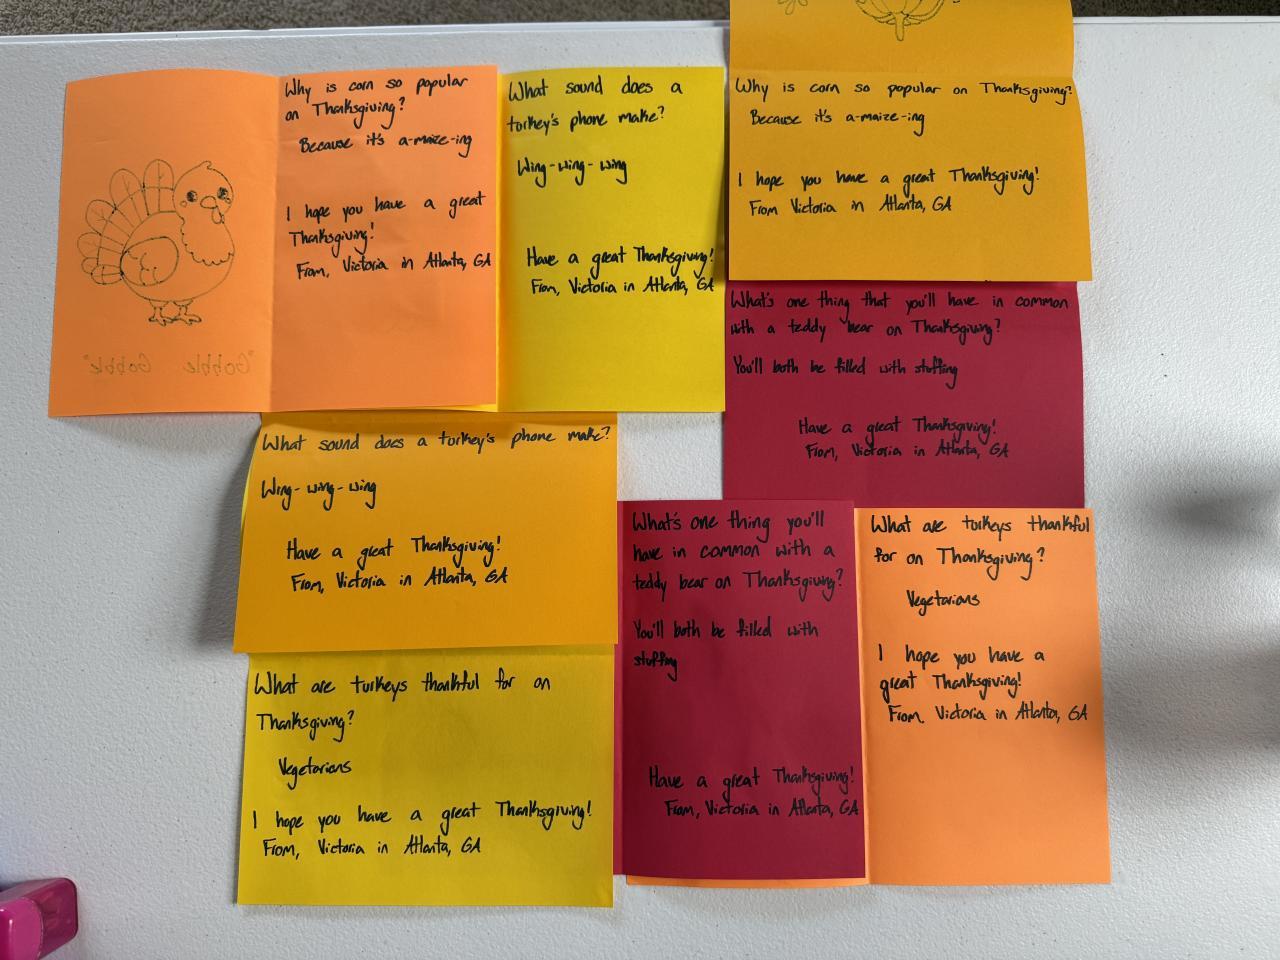 Why is corn so popular
on Thanksgiving?
Because it's a-maize-ing
I hope you have a great
Thanksgiving!
From, Victoria in Atlanta, GA
"Gobble Gobble"
What sound does a
turkey's phone make?
Wing-wing-wing
Have a great Thanksgiving!
From, Victoria in Atlanta, GA
Why is corn so popular on Thanksgiving?
Because it's a-maize-ing
I hope you have a great Thanksgiving!
From Victoria in Atlanta, GA
What's one thing that you'll have in common
with a teddy bear on Thanksgiving?
You'll both be filled with stuffing
Have a great Thanksgiving!
From, Victoria in Atlanta, GA
What sound does a turkey's phone make?
Wing-wing-wing
Have a great Thanksgiving!
From, Victoria in Atlanta, GA
What's one thing you'll
have in common with a
teddy bear on Thanksgiving?
You'll both be filled with
stuffing
Have a great Thanksgiving!
From, Victoria in Atlanta, GA
What are turkeys thankful
for on Thanksgiving?
Vegetarians
I hope you have a
great Thanksgiving!
From, Victoria in Atlanta, GA
What are turkeys thankful for on
Thanksgiving?
Vegetarians
I hope you have a great Thanksgiving!
From, Victoria in Atlanta, GA